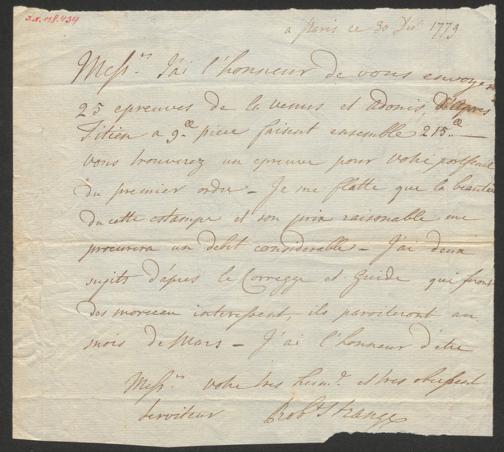 a Paris ce 30 Dᵉ 1779
Messʳˢ J'ai l'honneur de vous envoyer
25 epreuves de la venus et adonis, d'apres
Titien a 9.ᵗᵗ piece faisent ensemble 215.ᵗᵗ —
vous trouverez un epreuve pour votre portfeuil
du premier ordre — Je me flatte que la beautee
du cette estampe et son prix raisonable me
procurera un debit considerable — J'ai deux
sujets d'apres le Corregge et Guide qui feront
des morceau interessent, ils paroiteront au
mois de Mars — J'ai l'honneur d'etre
Messʳˢ votre tres humᵉ. et tres obeissent
serviteur Robᵗ Strange